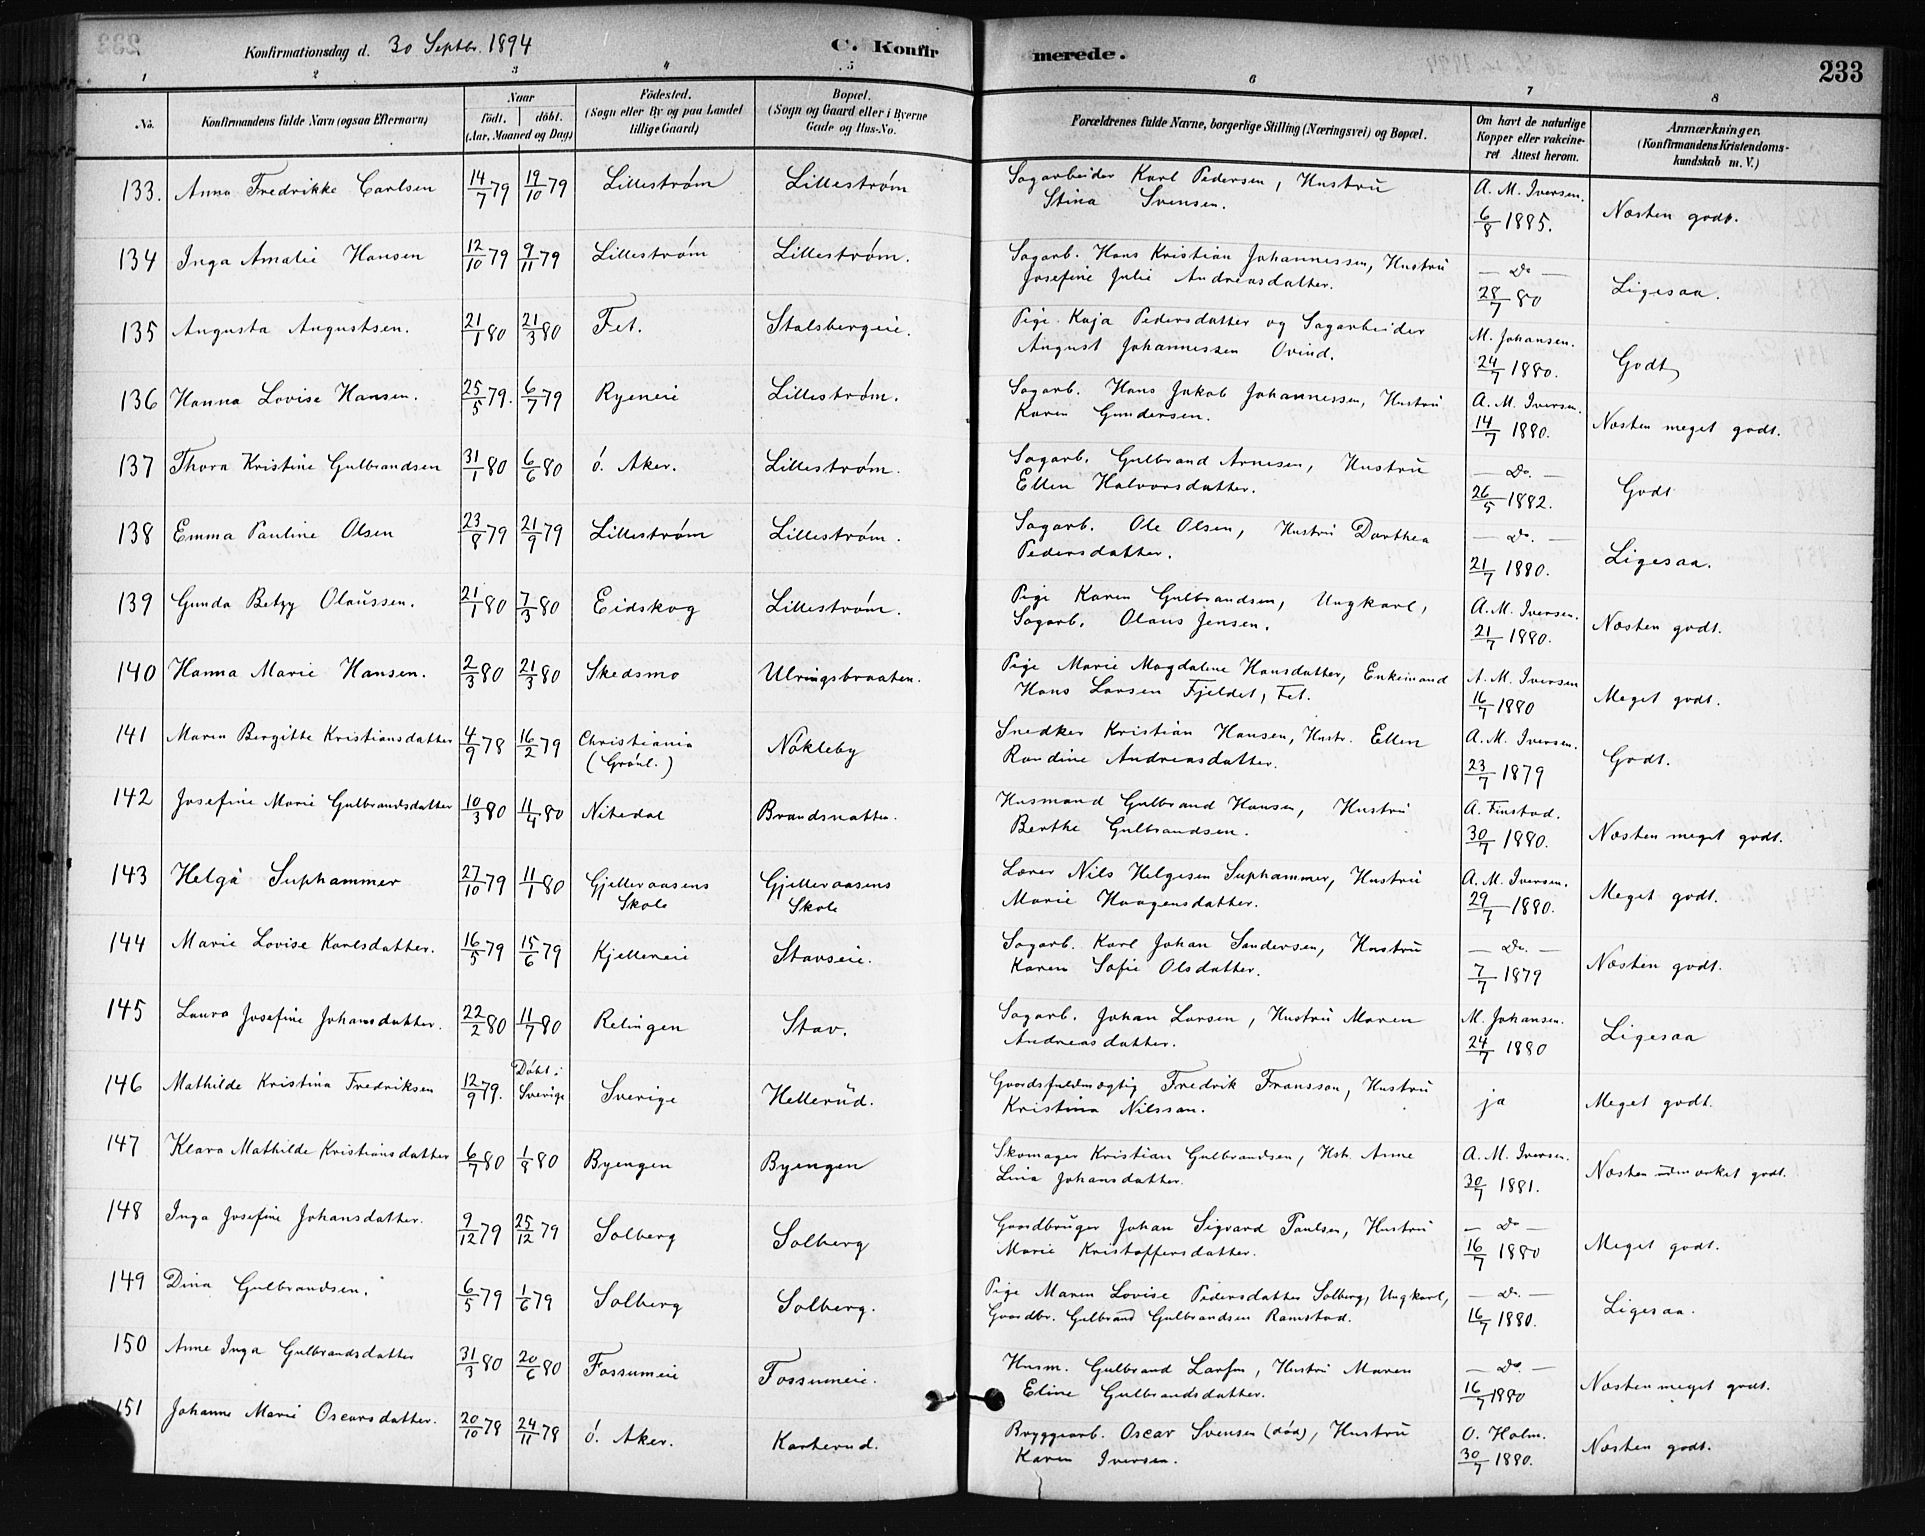 Konfirmationsdag d. 30 Septbr. 1894 C. Konfirmerede. 233
1 2 3 4 5 6 7 8
No. Konfirmandens fulde Navn (ogsaa Efternavn) Naar født. døbt. (Aar, Maaned og Dag) Fødested. (Sogn eller By og paa Landet tillige Gaard) Bopæl. (Sogn og Gaard eller i Byerne Gade og Hus-No. Forældrenes fulde Navne, borgerlige Stilling (Næringsvei) og Bopæl. Om havt de naturlige Kopper eller vakcineret Attest herom. Anmærkninger. (Konfirmandens Kristendomskundskab m. V.)
133. Anna Fredrikke Carlsen 14/7 79 19/10 79 Lillestrøm Lillestrøm Sagarbeider Karl Pedersen, Hustru Stina Svensen. A. M. Iversen. 6/8 1885. Næsten godt.
134 Inga Amalie Hansen 12/10 79 9/11 79 Lillestrøm Lillestrøm. Sagarb. Hans Kristian Johannessen, Hustru Josefine Julie Andreasdatter. — Do — 28/7 80 Ligesaa.
135 Augusta Augustsen. 21/1 80 21/3 80 Fet. Stalsbergeie. Pige Kaja Pedersdatter og Sagarbeider August Johannessen Ovind. M. Johansen. 24/7 1880. Godt
136 Hanna Lovise Hansen. 25/5 79. 6/7 79 Ryeneie Lillestrøm. Sagarb. Hans Jakob Johannessen, Hustru Karen Gundersen. A. M. Iversen. 14/7 1880. Næsten meget godt.
137 Thora Kristine Gulbrandsen 31/1 80 6/6 80 Ø. Aker. Lillestrøm. Sagarb. Gulbrand Arnesen, Hustru Ellen Halvorsdatter. — Do. — 26/5 1882. Godt
138 Emma Pauline Olsen 23/8 79 21/9 79 Lillestrøm Lillestrøm. Sagarb. Ole Olsen, Hustru Dorthea Pedersdatter. — Do. — 21/7 1880. Ligesaa.
139 Gunda Betzy Olaussen. 21/1 80 7/3 80 Eidskog Lillestrøm. Pige Karen Gulbrandsen, Ungkarl, Sagarb. Olaus Jensen. A. M. Iversen. 21/7 1880. Næsten godt.
140 Hanna Marie Hansen. 2/3 80 21/3 80 Skedsmo Ulringsbraaten. Pige Marie Magdalene Hansdatter, Enkemand Hans Larsen Fjeldet, Fet. A. M. Iversen 16/7 1880 Meget godt.
141 Maren Bergitte Kristiansdatter 4/9 78 16/2 79 Christiania (Grønl.) Nøkleby Snedker Kristian Hansen, Hustr. Ellen Randine Andreasdatter. A. M. Iversen. 23/7 1879 Godt.
142 Josefine Marie Gulbrandsdatter 10/3 80 11/4 80 Nitedal Brandsnatten. Husmand Gulbrand Hansen, Hustru Berthe Gulbrandsen. A. Finstad. 30/7 1880. Næsten meget godt.
143 Helga Suphammer 27/10 79 11/1 80 Gjelleraasens Skole Gjelleraasens Skole Lærer Nils Helgesen Suphammer, Hustru Marie Haagensdatter. A. M. Iversen. 29/7 1880. Meget godt.
144 Marie Lovise Karlsdatter. 16/5 79 15/6 79 Kjellereie Stavseie. Sagarb. Karl Johan Sandersen, Hustru Karen Sofie Olsdatter. — Do. — 7/7 1879 Næsten godt.
145 Laura Josefine Johansdatter. 22/2 80 11/7 80 Relingen Stav. Sagarb. Johan Larsen, Hustru Maren Andreasdatter. M. Johansen. 24/7 1880 Ligesaa
146 Mathilde Kristina Fredriksen 12/9 79. Døbt i Sverige Sverige Hellerud. Gaardsfuldmægtig Fredrik Fransson, Hustru Kristina Nilsson. ja Meget godt.
147 Klara Mathilde Kristiansdatter 6/7 80 1/8 80 Byengen Byengen Skomager Kristian Gulbrandsen, Hst. Anne Lina Johansdatter. A. M. Iversen. 30/7 1881. Næsten udmærket godt.
148 Inga Josefine Johansdatter. 9/12 79 25/12 79 Solberg Solberg Gaardbruger Johan Sigvard Paulsen, Hustru Marie Kristoffersdatter. — Do — 16/7 1880 Meget godt.
149 Dina Gulbrandsen. 6/5 79 1/6 79 Solberg Solberg. Pige Maren Lovise Pedersdatter Solberg, Ungkarl, Gaardbr. Gulbrand Gulbrandsen Ramstad. — Do. — 16/7 1880. Ligesaa.
150 Anne Inga Gulbrandsdatter 31/3 80 20/6 80 Fossumeie Fossumeie. Husm. Gulbrand Larsen, Hustru Maren Eline Gulbrandsdatter. — Do. — 16/7 1880 Næsten meget godt.
151 Johanne Marie Oscarsdatter. 20/10 78 24/11 78 Ø. Aker. Karterud. Bryggearb. Oscar Svensen (død), Hustru Karen Iversen. O. Holm. 30/7 1880. Næsten godt.